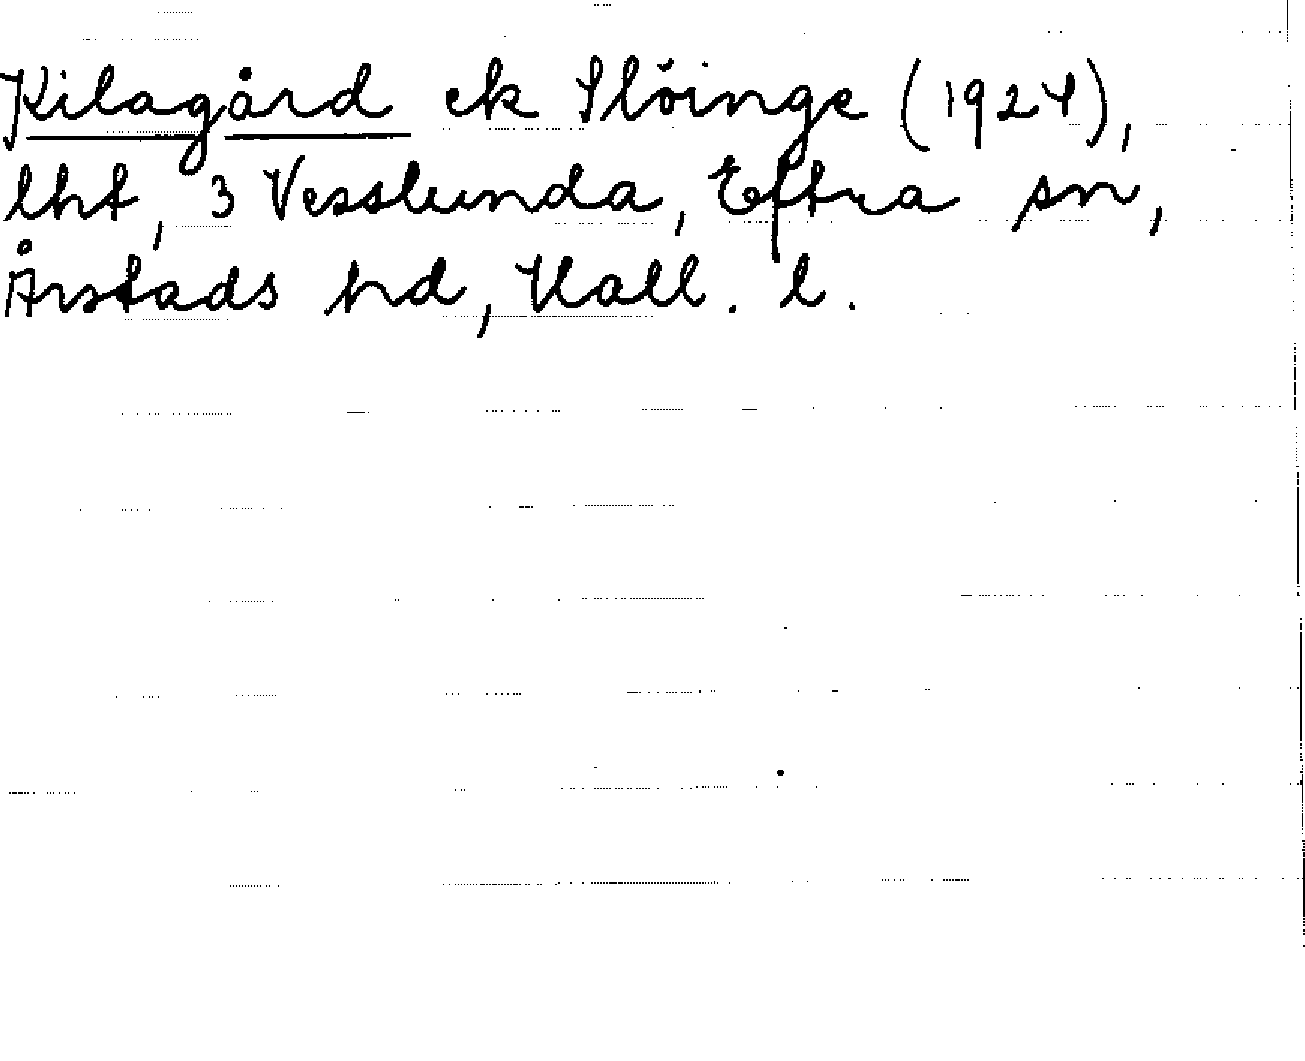 Kilagård ek Slöinge (1924),
lht, 3 Vesslunda, Eftra sn,
Årstads hd, Hall. l.